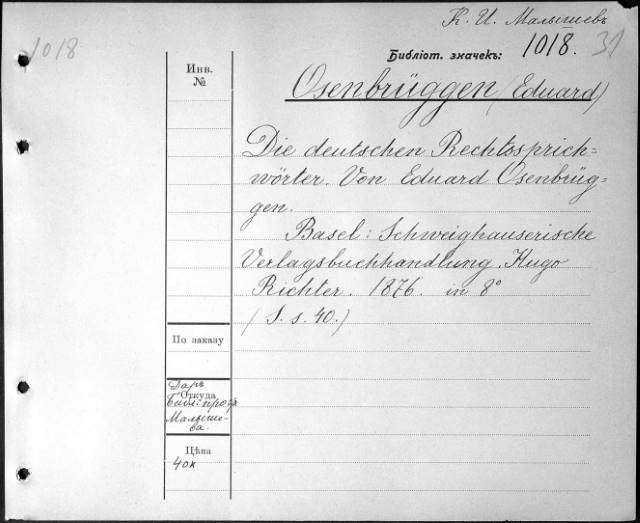 К. И. Малышевъ
1018
Библіот. значекъ: 1018. 31
Инв.
№
Osenbrüggen (Eduard)
Die deutschen Rechtssprich=
wörter. Von Eduard Osenbrüg=
gen.
Basel: Schweighauserische
Verlagsbuchhandlung. Hugo
Richter. 1876. in 8°
(S. s. 40.)
По заказу
Даръ
Откуда
Библ: проф.
Малыше-
ва.
Цѣна
40к